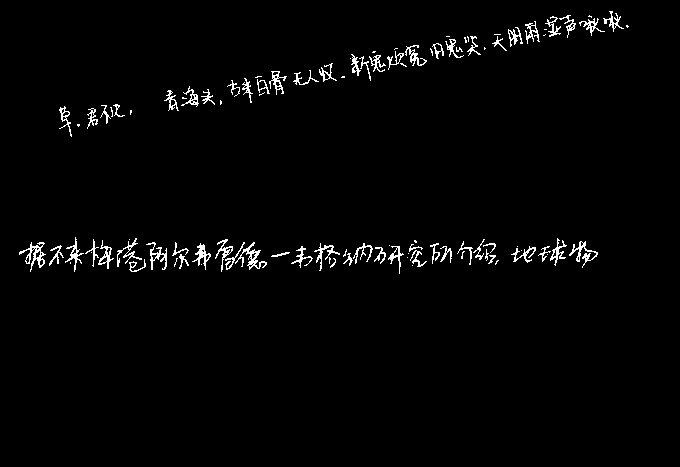 草.君不见, 青海头,古来白骨无人收.新鬼烦冤旧鬼哭.天阴雨湿声啾啾.
据不来梅港阿尔弗雷德一韦格纳研究所介绍,地球物